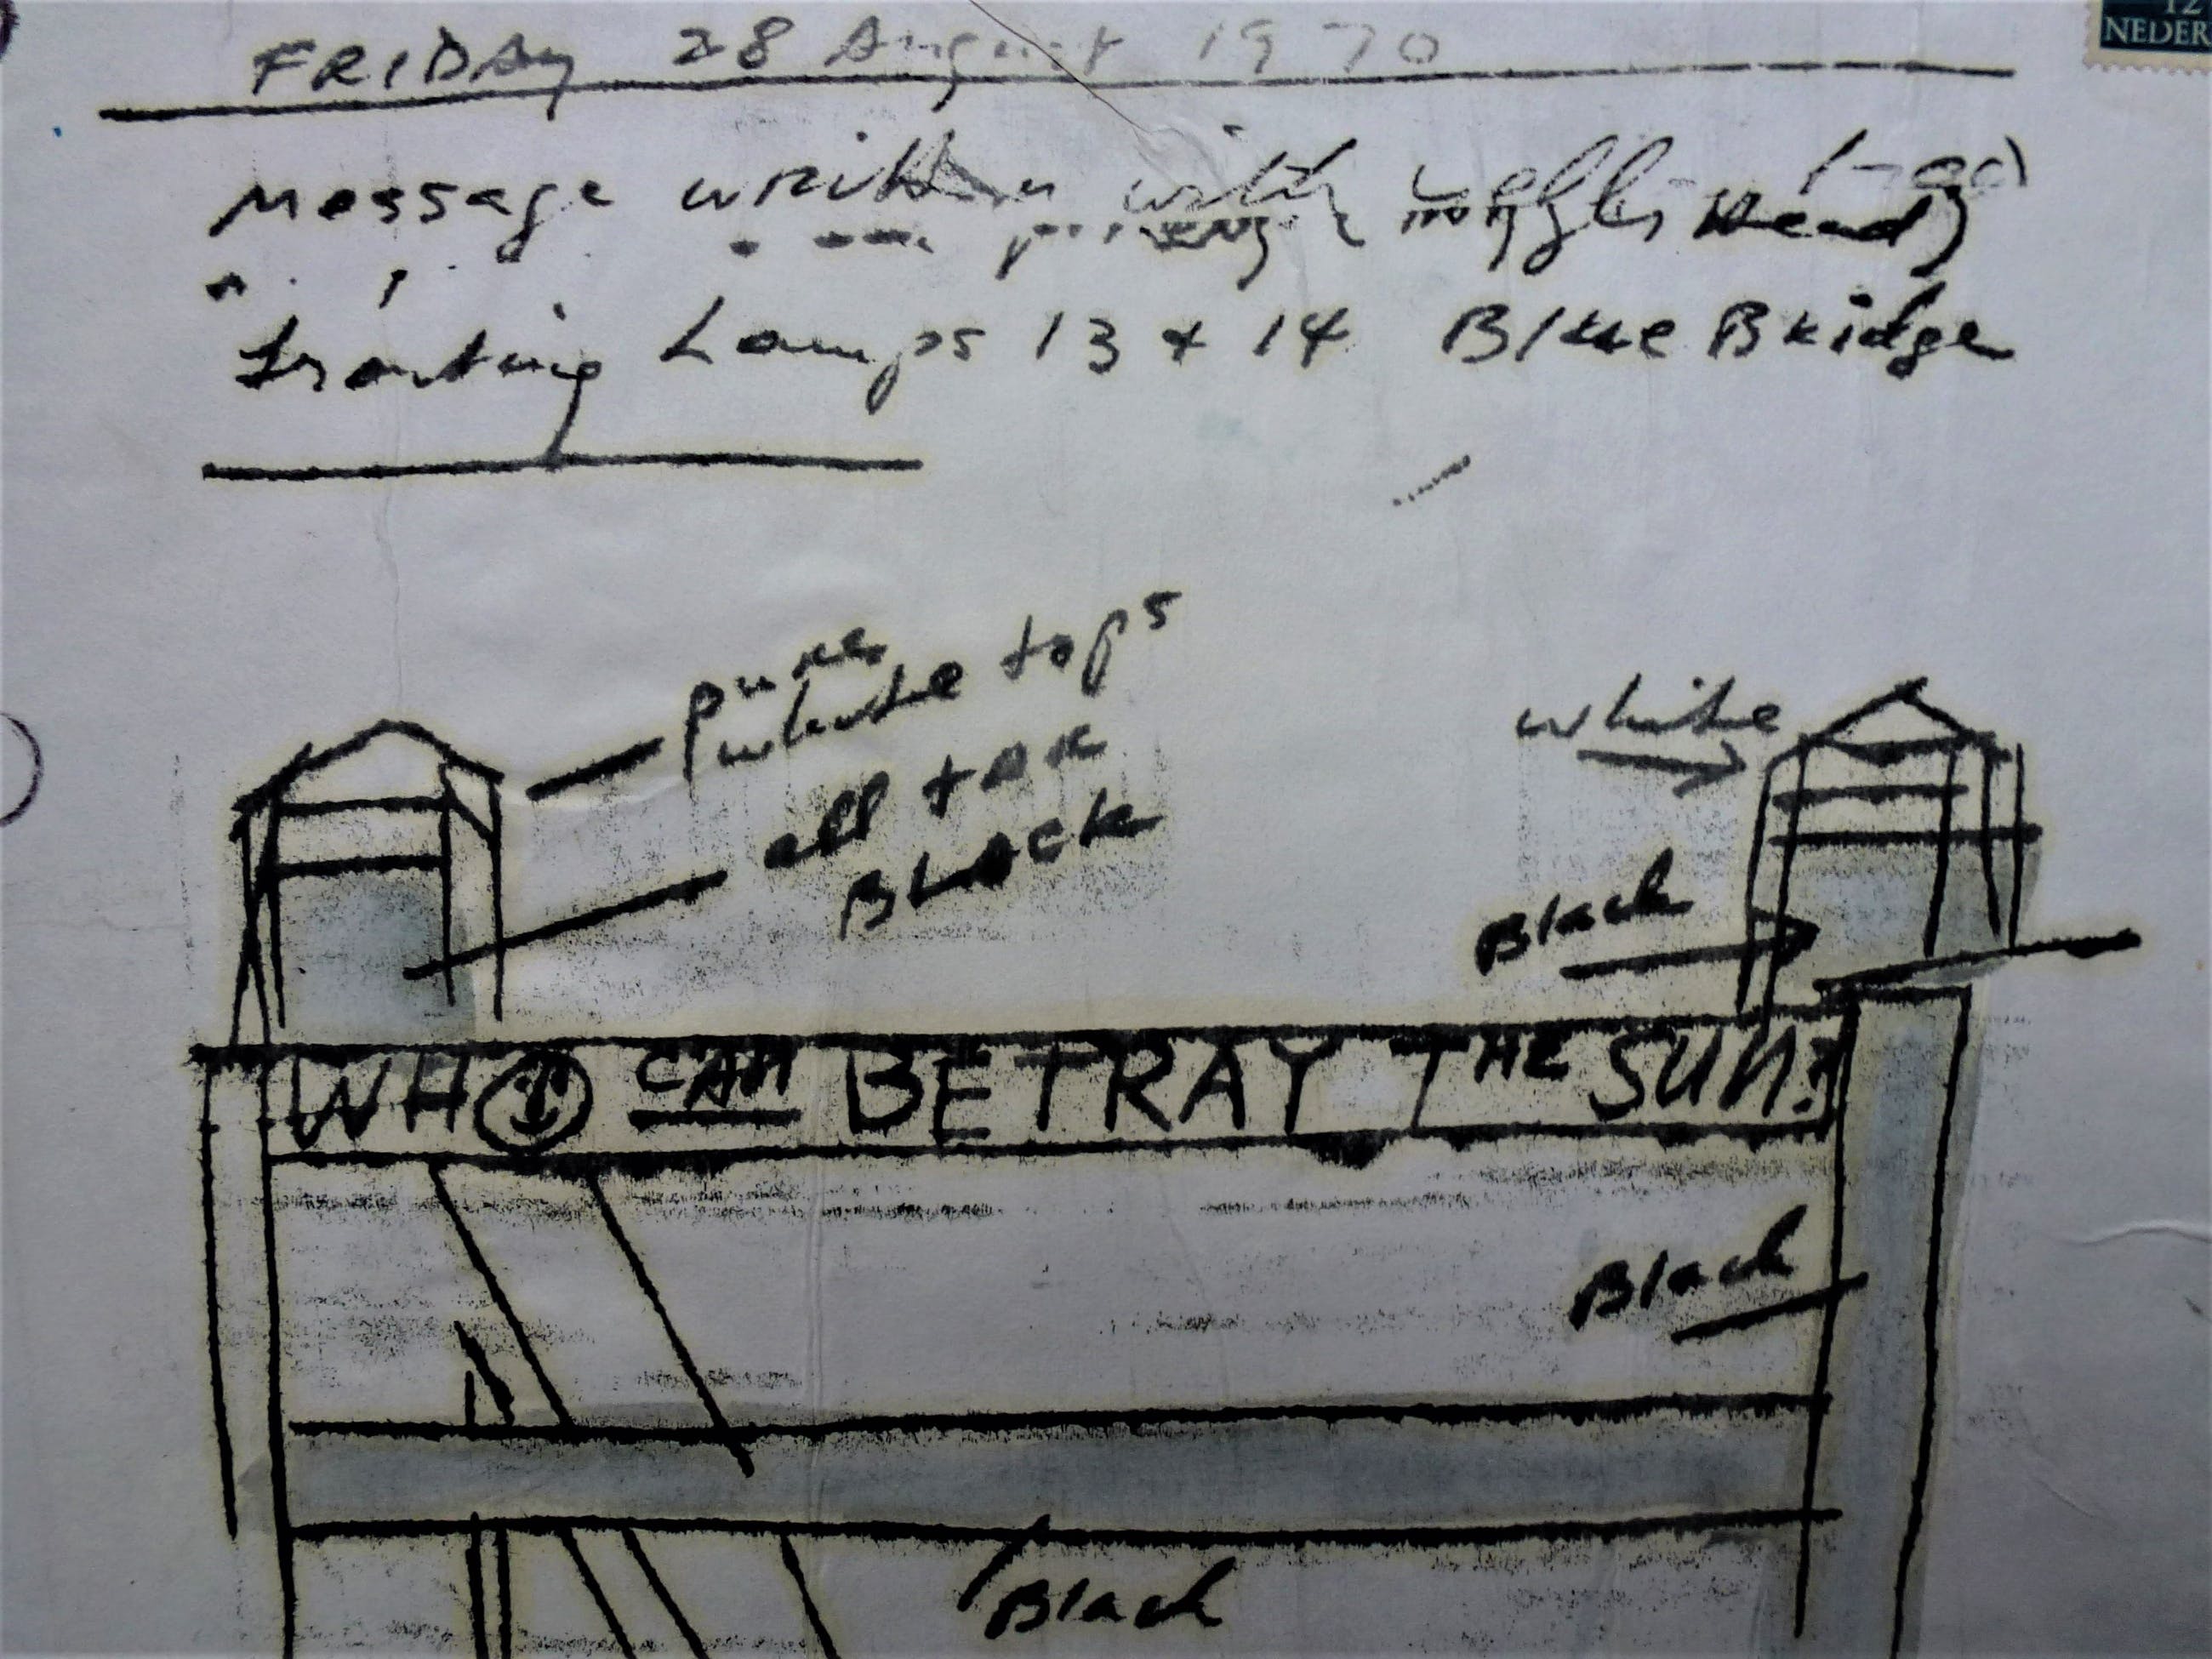 FRIDAY 28 August 1970
12
NEDER
Message written with
fronting Lamps 13 & 14 Blue Bridge
pure
white tops
all tox
BLACK
white
Black
WHO CAN BETRAY THE SUN?
Black
Black